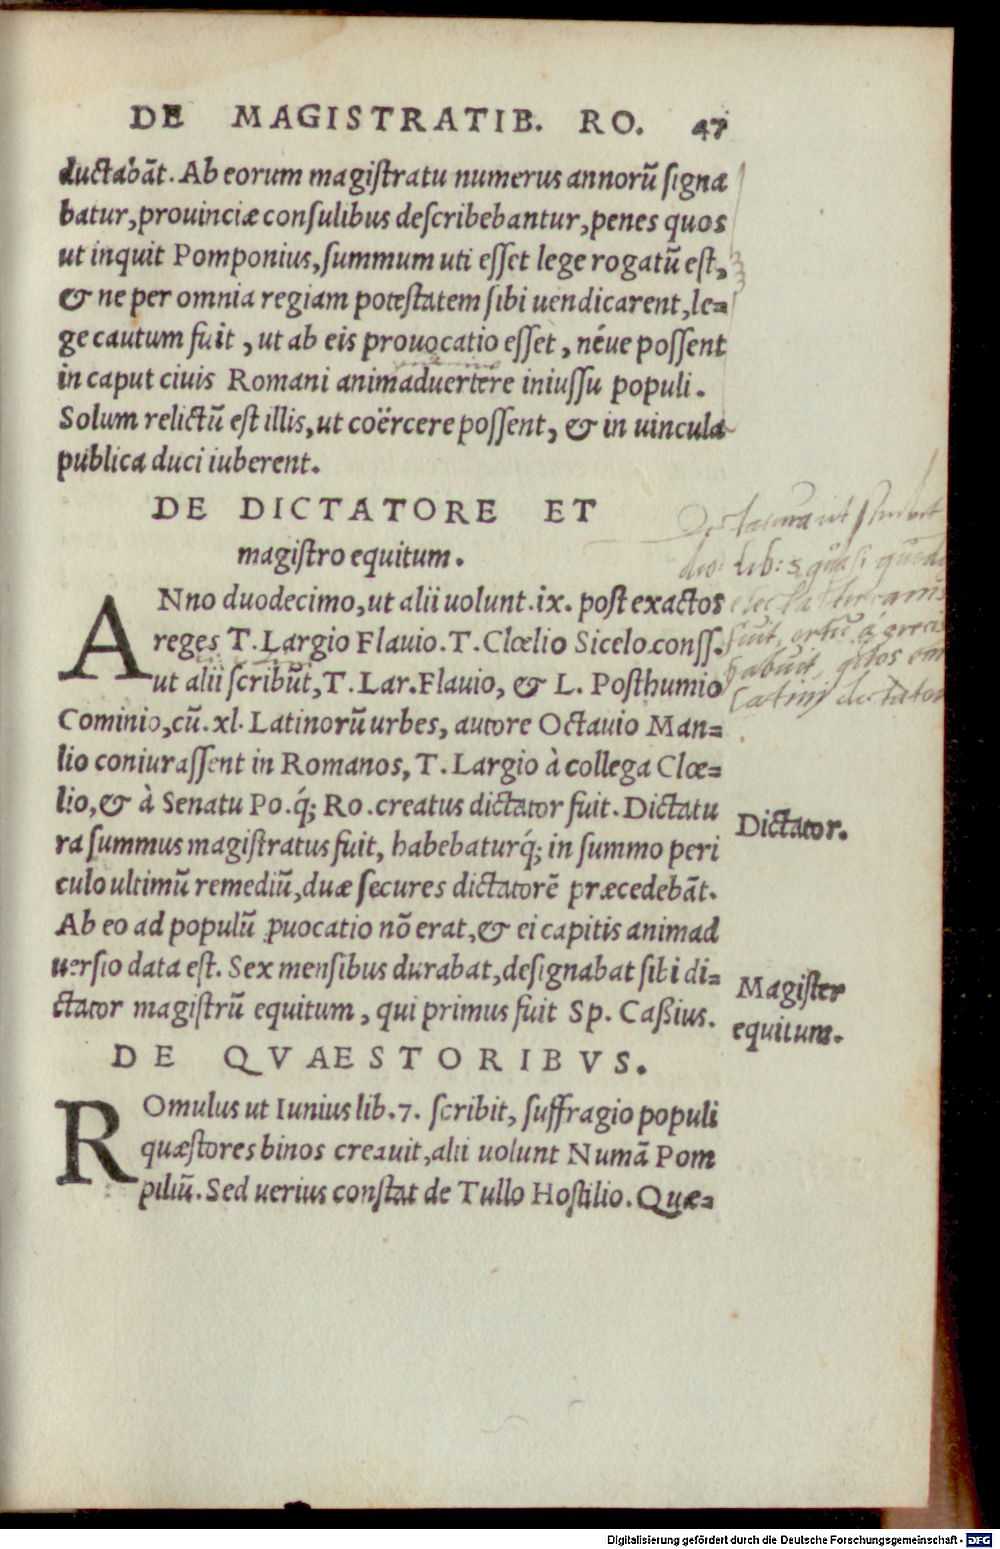 DE MAGISTRATIB. RO. 47
ductabāt. Ab eorum magiſtratu numerus annorū ſigna
batur, prouinciæ conſulibus deſcribebantur, penes quos
ut inquit Pomponius, ſummum uti eſſet lege rogatū eſt,
& ne per omnia regiam poteſtatem ſibi uendicarent, le=
ge cautum fuit, ut ab eis prouocatio eſſet, néue poſſent
in caput ciuis Romani animaduertere iniuſſu populi.
Solum relictū eſt illis, ut coërcere poſſent, & in uincula
publica duci iuberent.
DE DICTATORE ET
magiſtro equitum.
ANno duodecimo, ut alii uolunt .ix. poſt exactos
reges T. Largio Flauio. T. Clœlio Sicelo conſſ.
ut alii ſcribūt, T. Lar. Flauio, & L. Poſthumio
Cominio, cū .xl. Latinorū urbes, autore Octauio Man=
lio coniuraſſent in Romanos, T. Largio à collega Clœ=
lio, & à Senatu Po. q́; Ro. creatus dictator fuit. Dictatu
ra ſummus magiſtratus fuit, habebaturq́; in ſummo peri
culo ultimū remediū, duæ ſecures dictatorē præcedebāt.
Ab eo ad populū ꝓuocatio nō erat, & ei capitis animad
uerſio data eſt. Sex menſibus durabat, deſignabat ſibi di=
ctator magiſtrū equitum, qui primus fuit Sp. Caßius.
Dictator.
Magiſter
equitum.
DE QVAESTORIBVS.
ROmulus ut Iunius lib. 7. ſcribit, ſuffragio populi
quæſtores binos creauit, alii uolunt Numā Pom
piliū. Sed uerius conſtat de Tullo Hoſtilio. Quæ=
Digitalisierung gefördert durch die Deutsche Forschungsgemeinschaft - DFG